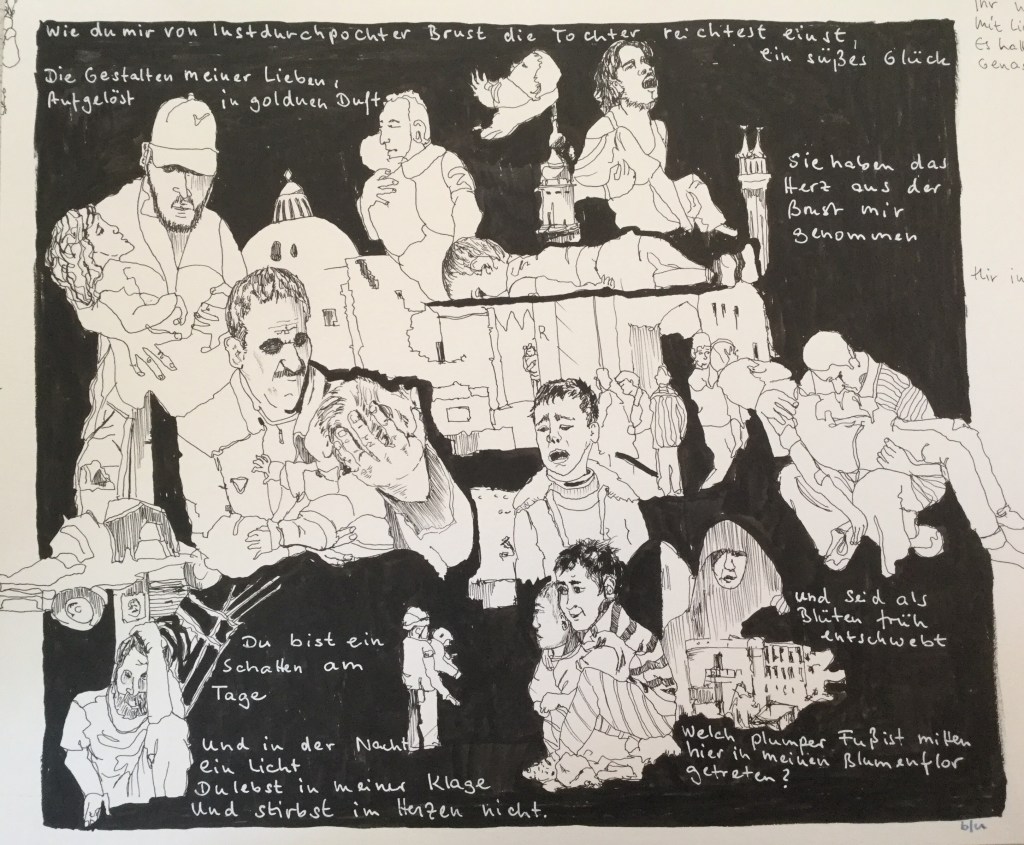 Wie du mir von lustdurchpochter Brust die Tochter reichtest einst,
ein süßes Glück
Die Gestalten meiner Lieben,
Aufgelöst in goldnen Duft
Sie haben das
Herz aus der
Brust mir
genommen
und seid als
Blüten früh
entschwebt
Du bist ein
Schatten am
Tage
Und in der Nacht
ein Licht
Du lebst in meiner Klage
Und stirbst im Herzen nicht.
Welch plumper Fuß ist mitten
hier in meinen Blumenflor
getreten?
Ihr
mit
Es
Hir